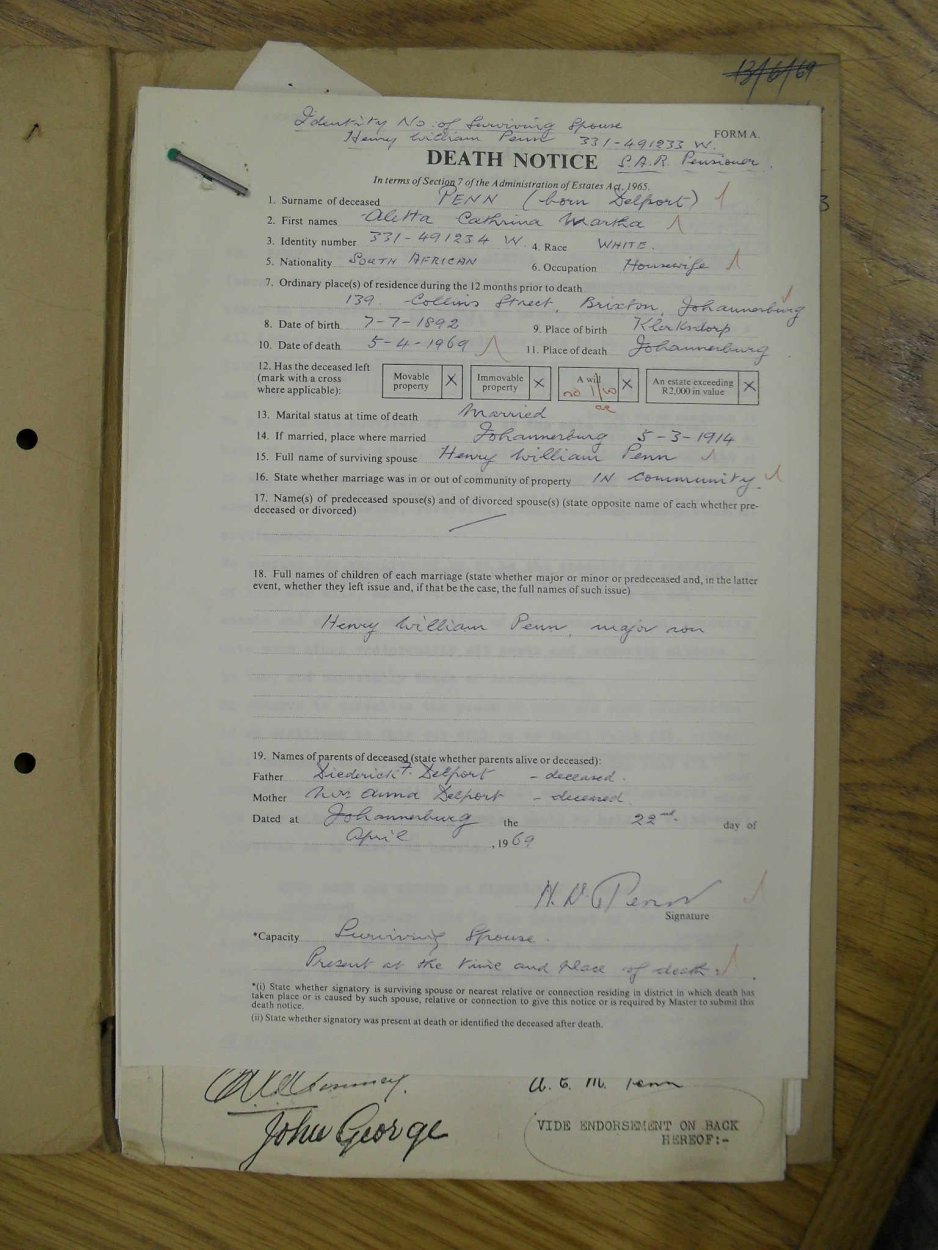 13/6/69
Identity No. of Surviving Spouse
Henry William Penn 331-491233 W. FORM A.
DEATH NOTICE S.A.R. Pensioner.
In terms of Section 7 of the Administration of Estates Act, 1965.
1. Surname of deceased PENN (born Delport)
2. First names Aletta Cathrina Martha
3. Identity number 331-491234 W. 4. Race WHITE.
5. Nationality SOUTH AFRICAN 6. Occupation Housewife
7. Ordinary place(s) of residence during the 12 months prior to death
139. Collins Street, Brixton, Johannesburg
8. Date of birth 7-7-1892 9. Place of birth Klerksdorp
10. Date of death 5-4-1969 11. Place of death Johannesburg
12. Has the deceased left
(mark with a cross
where applicable):
Movable property X
Immovable property X
A will X
An estate exceeding R2,000 in value X
13. Marital status at time of death Married
14. If married, place where married Johannesburg 5-3-1914
15. Full name of surviving spouse Henry William Penn
16. State whether marriage was in or out of community of property IN Community.
17. Name(s) of predeceased spouse(s) and of divorced spouse(s) (state opposite name of each whether pre-
deceased or divorced)
18. Full names of children of each marriage (state whether major or minor or predeceased and, in the latter
event, whether they left issue and, if that be the case, the full names of such issue)
Henry William Penn, major son
19. Names of parents of deceased (state whether parents alive or deceased):
Father Diederick Delport - deceased.
Mother Mrs Anna Delport - deceased.
Dated at Johannesburg the 22nd. day of
April, 1969
H. W. Penn
Signature
*Capacity Surviving Spouse.
Present at the time and place of death.
*(i) State whether signatory is surviving spouse or nearest relative or connection residing in district in which death has
taken place or is caused by such spouse, relative or connection to give this notice or is required by Master to submit this
death notice.
(ii) State whether signatory was present at death or identified the deceased after death.
A. C. M. Penn
John George
VIDE ENDORSEMENT ON BACK
HEREOF:-